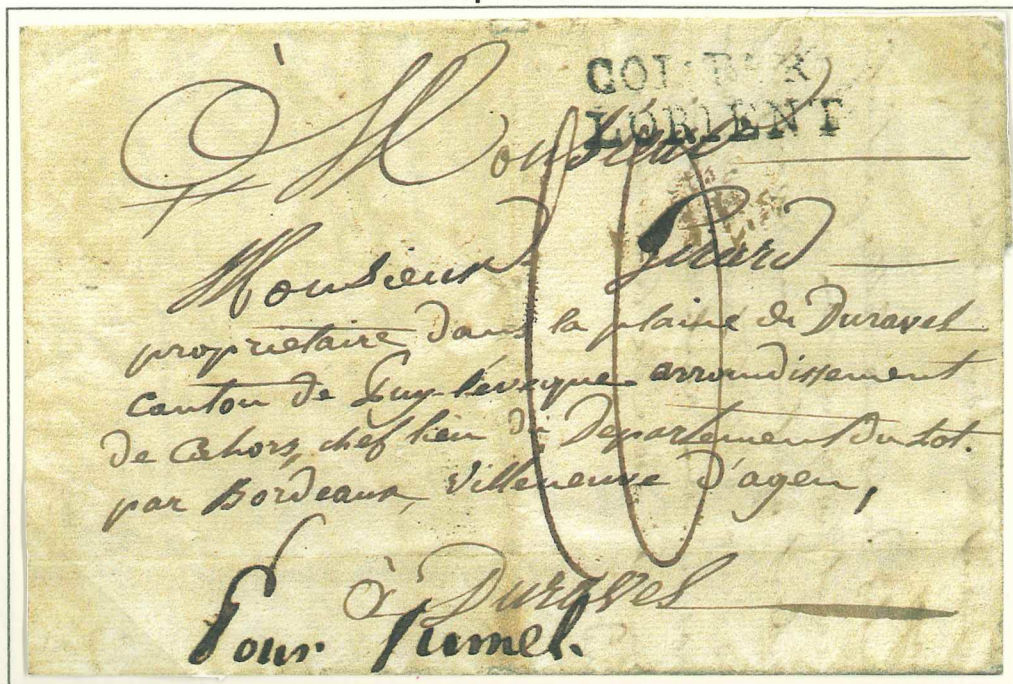 COL. PAR
LORIENT
à Monsieur
Monsieur Girard
propriétaire dans la plaine de Duravel
canton de Puy-lévêque arrondissement
de Cahors, chef lieu du Département du Lot.
par Bordeaux, Villeneuve d'agen,
à Duravel
Pour fumel.